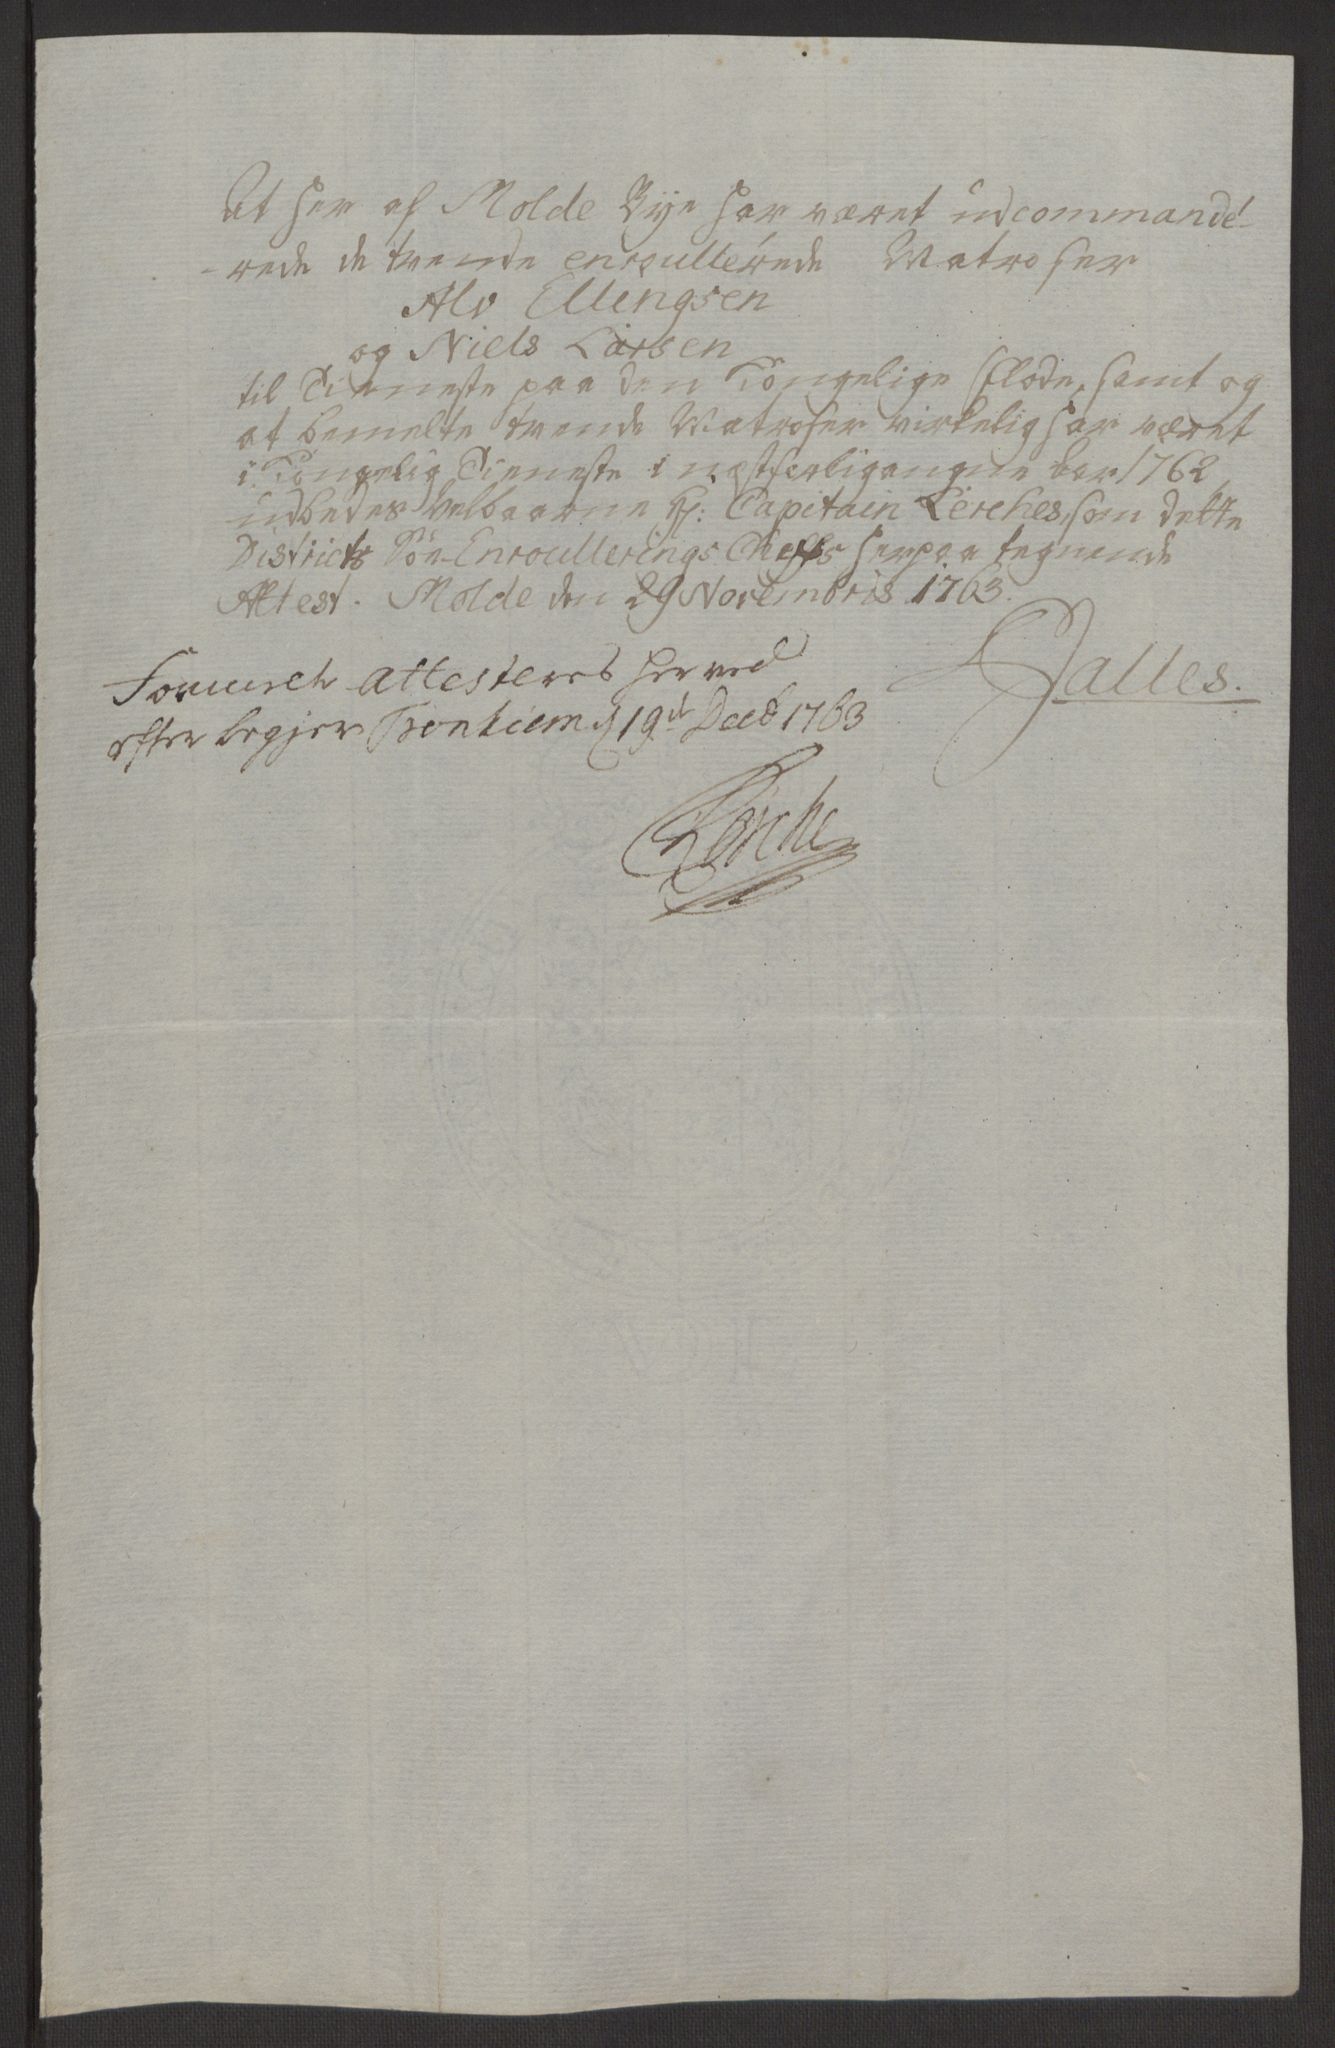 At her af Molde Bye har været udcommandé-
-rede de tvende enroullerede Matroser
Alv Ellingsen
og Niels Larsen
til Tieneste paa den Kongelige Flode, samt og
at bemelte tvende Matroser virkelig har været
i Kongelig Tieneste i næstforbigangne Aar 1762,
udbedes Velbaarne Hr: Capitain Lerches, som dette
Districts Söe-Enroullerings Cheffs herpaa tegnende
Attest. Molde den 29 Novembris 1763.
Dalles.
attesteres herved
efter begjer Tronhiem d 19de Decb 1763
Lerche